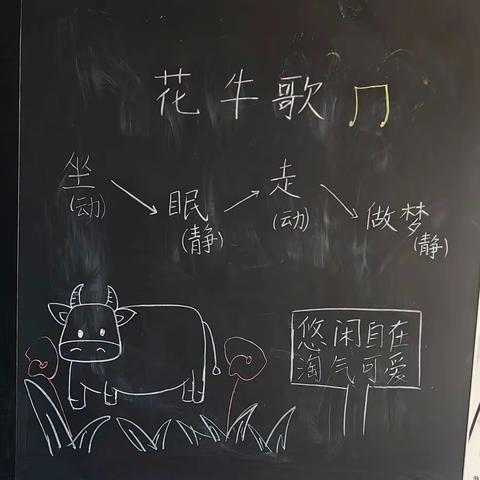 花牛歌
坐 眠 走 做梦
(动) (静) (动) (静)
悠闲自在
淘气可爱